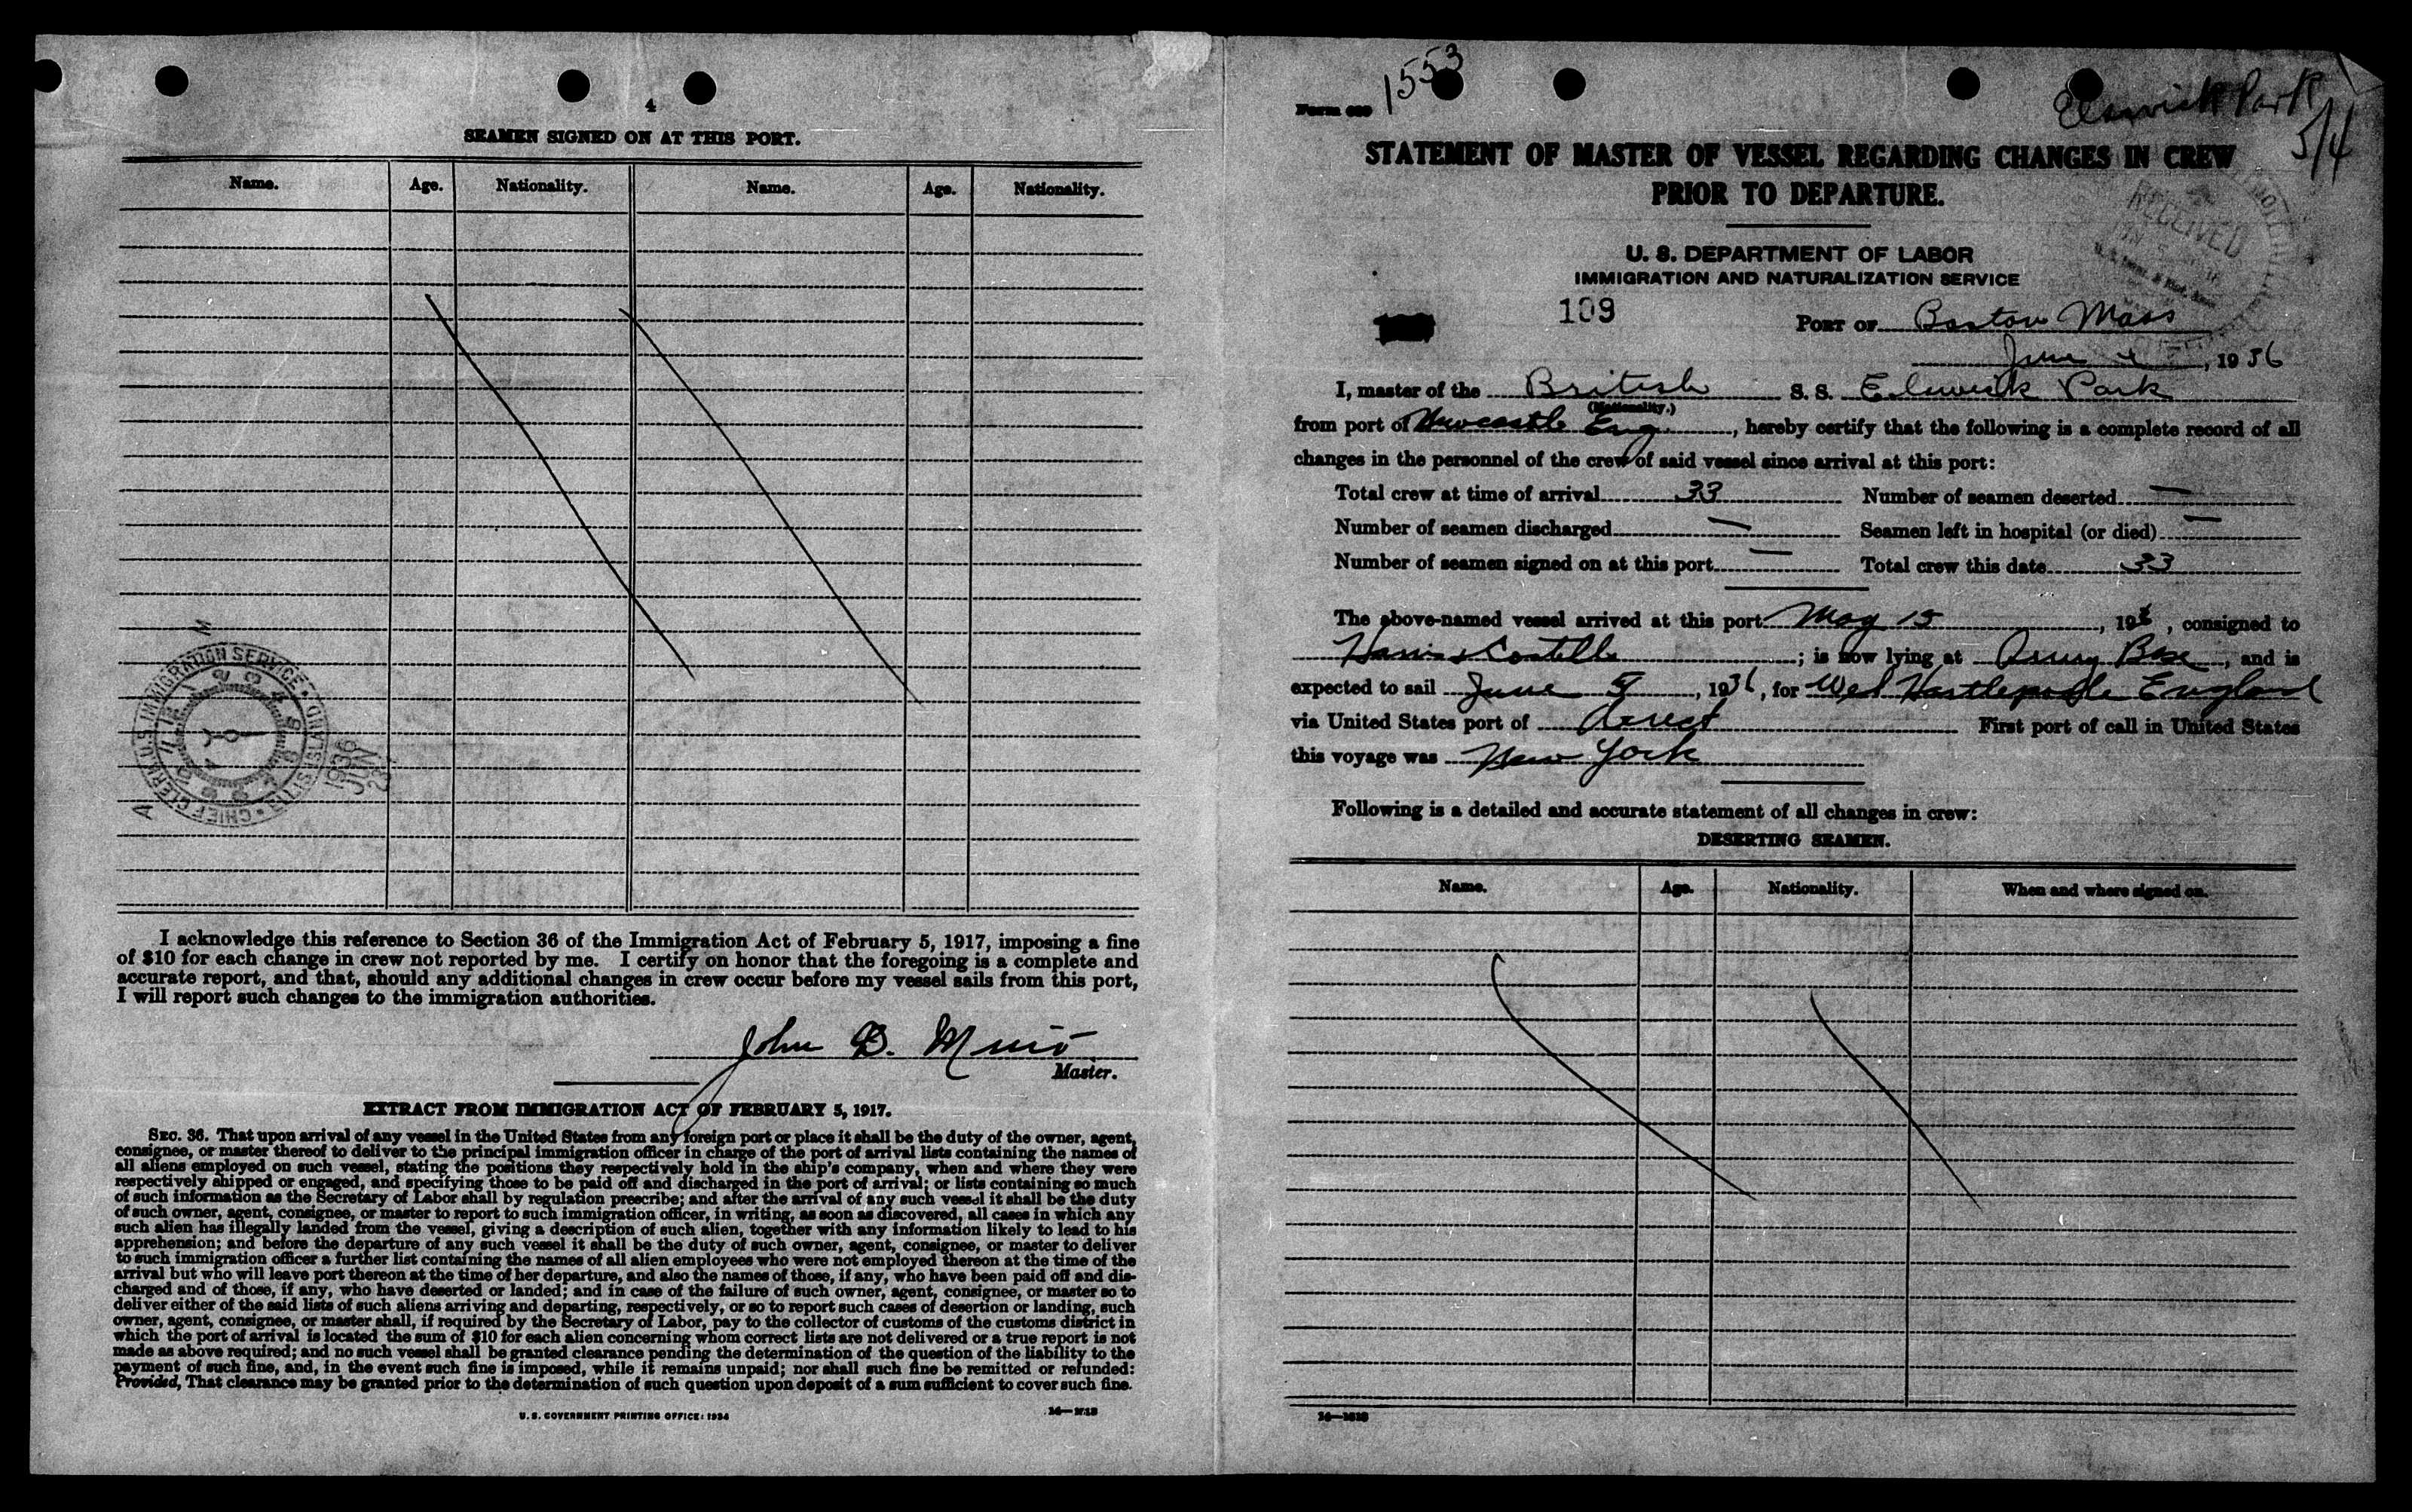 4
SEAMEN SIGNED ON AT THIS PORT.
Name. Age. Nationality. Name. Age. Nationality.
CHIEF CLERK U.S. IMMIGRATION SERVICE ELLIS ISLAND
1936
JUN
23
I acknowledge this reference to Section 36 of the Immigration Act of February 5, 1917, imposing a fine
of $10 for each change in crew not reported by me. I certify on honor that the foregoing is a complete and
accurate report, and that, should any additional changes in crew occur before my vessel sails from this port,
I will report such changes to the immigration authorities.
John D. Muir
Master.
EXTRACT FROM IMMIGRATION ACT OF FEBRUARY 5, 1917.
SEC. 36. That upon arrival of any vessel in the United States from any foreign port or place it shall be the duty of the owner, agent,
consignee, or master thereof to deliver to the principal immigration officer in charge of the port of arrival lists containing the names of
all aliens employed on such vessel, stating the positions they respectively hold in the ship's company, when and where they were
respectively shipped or engaged, and specifying those to be paid off and discharged in the port of arrival; or lists containing so much
of such information as the Secretary of Labor shall by regulation prescribe; and after the arrival of any such vessel it shall be the duty
of such owner, agent, consignee, or master to report to such immigration officer, in writing, as soon as discovered, all cases in which any
such alien has illegally landed from the vessel, giving a description of such alien, together with any information likely to lead to his
apprehension; and before the departure of any such vessel it shall be the duty of such owner, agent, consignee, or master to deliver
to such immigration officer a further list containing the names of all alien employees who were not employed thereon at the time of the
arrival but who will leave port thereon at the time of her departure, and also the names of those, if any, who have been paid off and dis-
charged and of those, if any, who have deserted or landed; and in case of the failure of such owner, agent, consignee, or master so to
deliver either of the said lists of such aliens arriving and departing, respectively, or so to report such cases of desertion or landing, such
owner, agent, consignee, or master shall, if required by the Secretary of Labor, pay to the collector of customs of the customs district in
which the port of arrival is located the sum of $10 for each alien concerning whom correct lists are not delivered or a true report is not
made as above required; and no such vessel shall be granted clearance pending the determination of the question of the liability to the
payment of such fine, and, in the event such fine is imposed, while it remains unpaid; nor shall such fine be remitted or refunded:
Provided, That clearance may be granted prior to the determination of such question upon deposit of a sum sufficient to cover such fine.
U. S. GOVERNMENT PRINTING OFFICE: 1934
Form 1553
Elswick Park
5/4
STATEMENT OF MASTER OF VESSEL REGARDING CHANGES IN CREW
PRIOR TO DEPARTURE.
RECEIVED
U. S. DEPARTMENT OF LABOR
IMMIGRATION AND NATURALIZATION SERVICE
109
PORT OF Boston Mass
June 4, 1936
I, master of the British S. S. Elswick Park
(Nationality.)
from port of Newcastle Eng, hereby certify that the following is a complete record of all
changes in the personnel of the crew of said vessel since arrival at this port:
Total crew at time of arrival 33 Number of seamen deserted —
Number of seamen discharged — Seamen left in hospital (or died) —
Number of seamen signed on at this port — Total crew this date 33
The above-named vessel arrived at this port May 15, 1936, consigned to
; is now lying at Army Base, and is
expected to sail June 5, 1936, for West Hartlepool England
via United States port of direct First port of call in United States
this voyage was New York
Following is a detailed and accurate statement of all changes in crew:
DESERTING SEAMEN.
Name. Age. Nationality. When and where signed on.